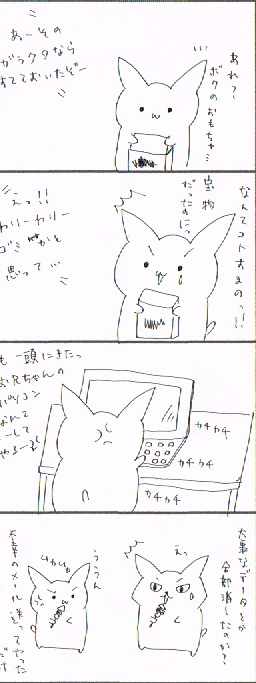 あれ?
ボクのおもちゃ…
あーその
ガラクタなら
すてておいたぞー
なんてコトするのっ!!
宝物
だったのにっ
えっ!!
わりーわりー
ゴミかと
思って…
頭にきたっ
兄ちゃんの
パソコン
なんて
こーして
やるーっ!
カチカチ
カチカチ
カチカチ
大事なデータとか
全部消したのか?
えっ
ううん
不幸のメール送ってやった
だけ